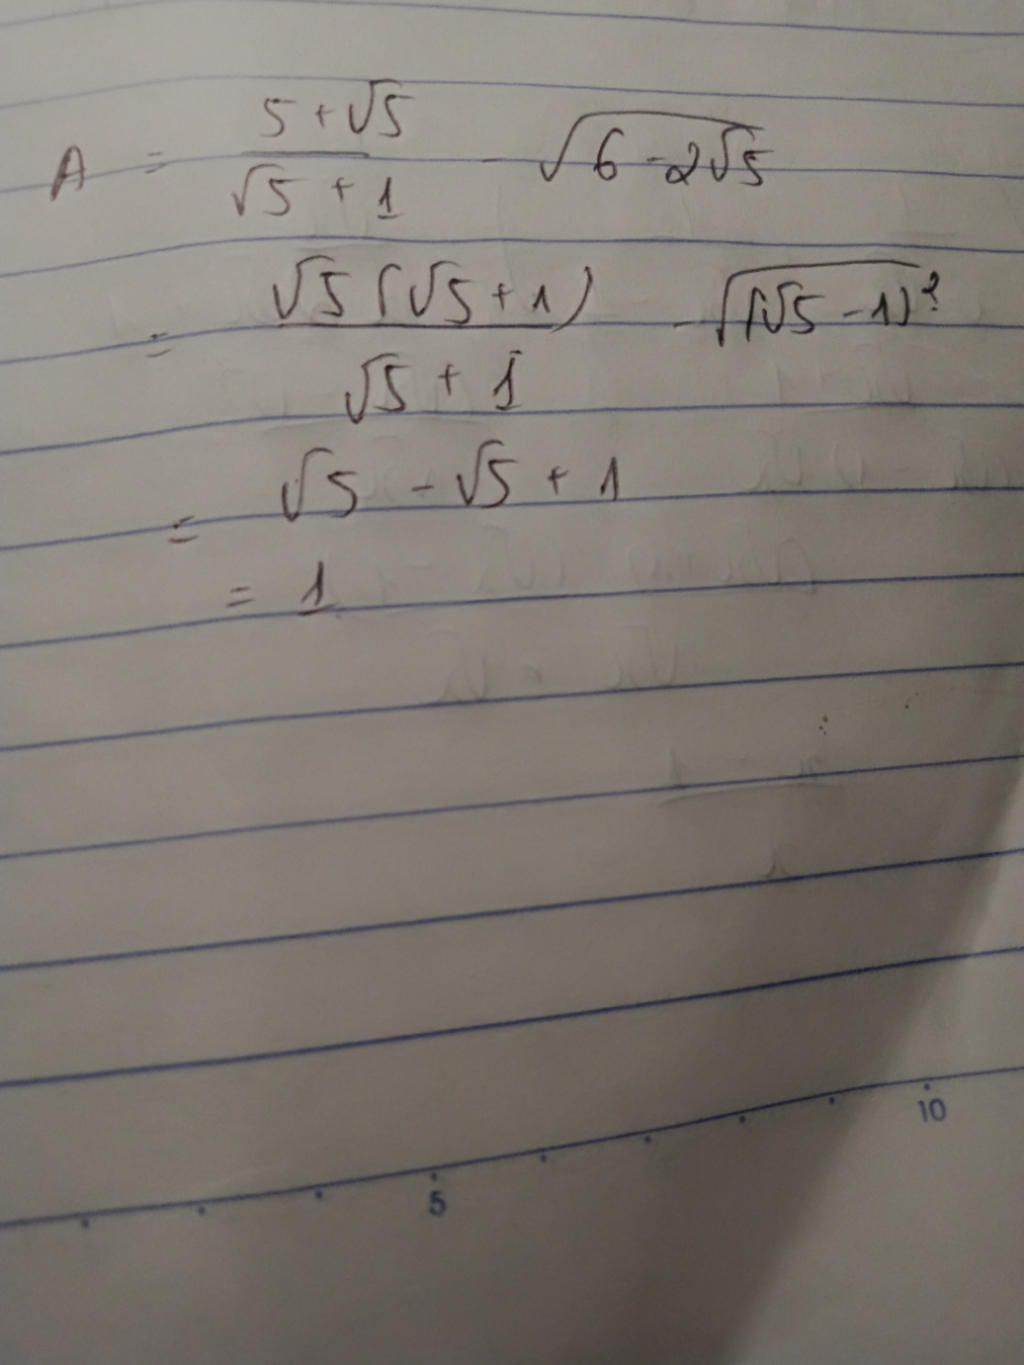 A = \frac{5 + \sqrt{5}}{\sqrt{5} + 1} - \sqrt{6 - 2\sqrt{5}}
= \frac{\sqrt{5}(\sqrt{5} + 1)}{\sqrt{5} + 1} - \sqrt{(\sqrt{5} - 1)^2}
= \sqrt{5} - \sqrt{5} + 1
= 1
10
5